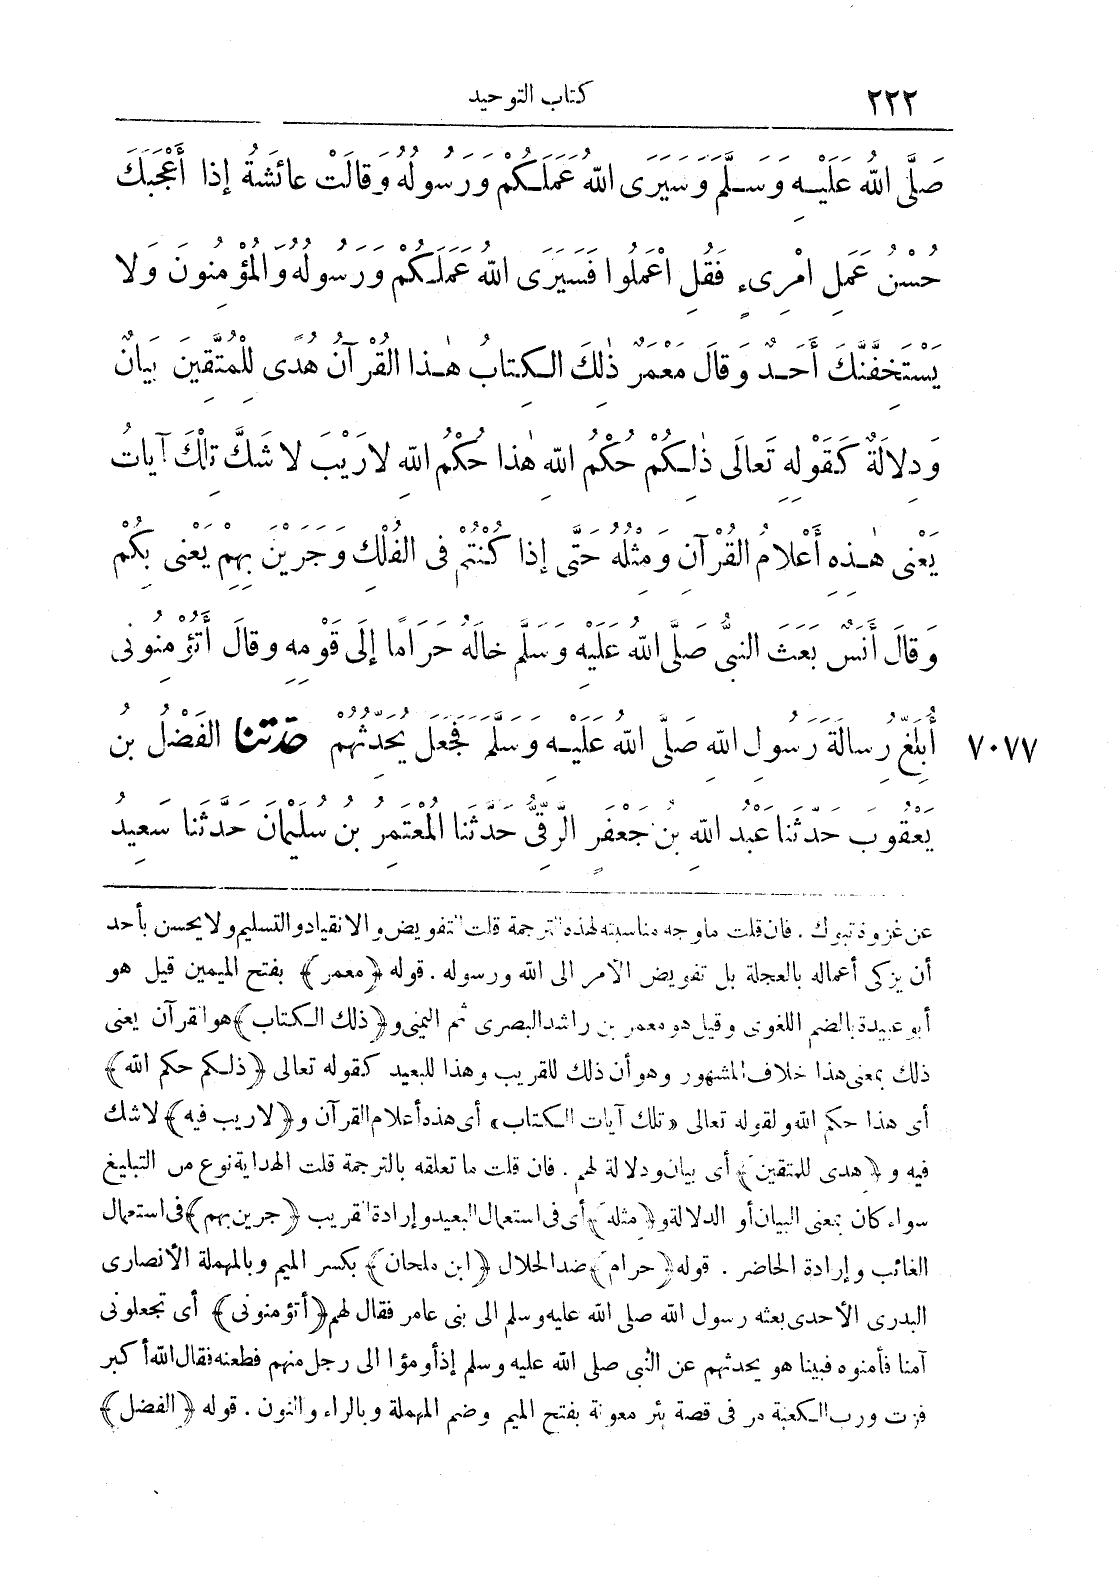 ٢٢٢ كتاب التوحيد
صَلَّى اللهُ عَلَيْهِ وَسَلَّمَ وَسَيَرَى اللهُ عَمَلَكُمْ وَرَسُولُهُ وَقَالَتْ عائشَةُ إذا أَعْجَبَكَ
حُسْنُ عَمَلِ امْرِىءٍ فَقُلِ اعْمَلُوا فَسَيَرَى اللهُ عَمَلَكُمْ وَرَسُولُهُ وَالمُؤْمِنُونَ وَلا
يَسْتَخِفَّنَّكَ أَحَدٌ وَقَالَ مَعْمَرٌ ذٰلِكَ الكِتابُ هٰذا القُرْآنُ هُدًى لِلْمُتَّقِينَ بَيانٌ
وَدِلالَةٌ كَقَوْلِهِ تَعالَى ذٰلِكُمْ حُكْمُ اللهِ هٰذا حُكْمُ اللهِ لارَيْبَ لا شَكَّ تِلْكَ آياتُ
يَعْنِى هٰذِهِ أَعْلامُ القُرْآنِ وَمِثْلُهُ حَتَّى إذا كُنْتُمْ فى الفُلْكِ وَجَرَيْنَ بِهِمْ يَعْنِى بِكُمْ
وَقالَ أَنَسٌ بَعَثَ النبىُّ صَلَّى اللهُ عَلَيْهِ وَسَلَّمَ خالَهُ حَرَامًا إلَى قَوْمِهِ وَقالَ أَتُؤْمِنُونِى
أُبَلِّغُ رِسالَةَ رَسُولِ اللهِ صَلَّى اللهُ عَلَيْهِ وَسَلَّمَ فَجَعَلَ يُحَدِّثُهُمْ حدثنا الفَضْلُ بنُ ٧٠٧٧
يَعْقُوبَ حَدَّثَنا عَبْدُ اللهِ بنُ جَعْفَرٍ الرَّقِّىُّ حَدَّثَنا المُعْتَمِرُ بنُ سُلَيْمانَ حَدَّثَنا سَعِيدُ
عن غزوة تبوك . فان قلت ما وجه مناسبته لهذه الترجمة قلت التفويض والانقياد والتسليم ولا يحسن بأحد
أن يزكى أعماله بالعجلة بل تفويض الأمر الى الله ورسوله . قوله ﴿معمر﴾ بفتح الميمين قيل هو
أبو عبيدة بالضم اللغوى وقيل هو معمر بن راشد البصرى ثم اليمنى و﴿ذلك الكتاب﴾ هو القرآن يعنى
ذلك بمعنى هذا خلاف المشهور وهو أن ذلك للقريب وهذا للبعيد كقوله تعالى ﴿ذلكم حكم الله﴾
أى هذا حكم الله ولقوله تعالى «تلك آيات الكتاب» أى هذه أعلام القرآن و﴿لاريب فيه﴾ لا شك
فيه و ﴿هدى للمتقين﴾ أى بيان ودلالة لهم . فان قلت ما تعلقه بالترجمة قلت الهداية نوع من التبليغ
سواء كان بمعنى البيان أو الدلالة و﴿مثله﴾ أى فى استعمال البعيد وإرادة القريب ﴿جرين بهم﴾ فى استعمال
الغائب وإرادة الحاضر . قوله ﴿حرام﴾ ضد الحلال ﴿ابن ملحان﴾ بكسر الميم وبالمهملة الأنصارى
البدرى الأحدى بعثه رسول الله صلى الله عليه وسلم الى بنى عامر فقال لهم ﴿أتؤمنونى﴾ أى تجعلونى
آمنا فأمنوه فبينا هو يحدثهم عن النبى صلى الله عليه وسلم إذ أومؤا الى رجل منهم فطعنه فقال الله أكبر
فزت ورب الكعبة مر فى قصة بئر معونة بفتح الميم وضم المهملة وبالراء والنون . قوله ﴿الفضل﴾